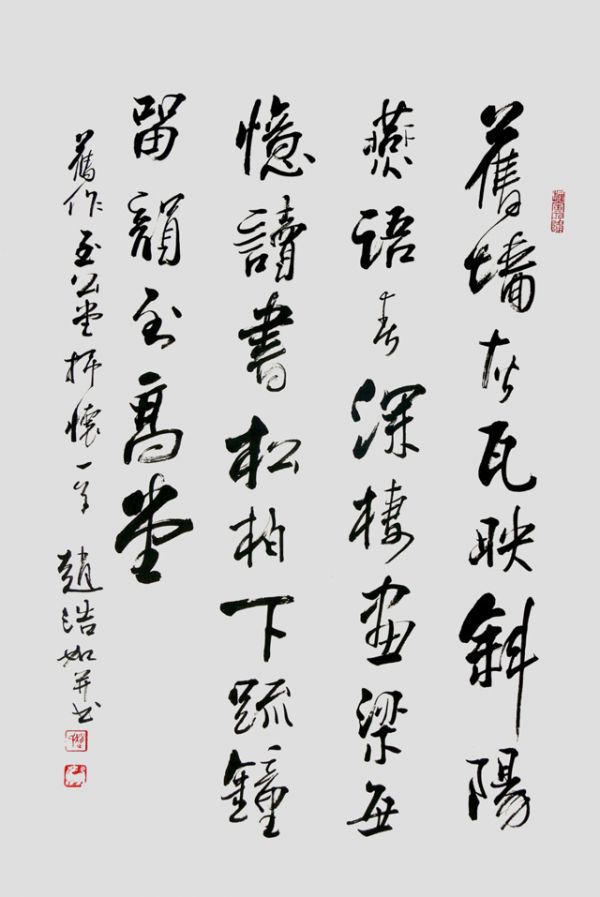 舊墻灰瓦映斜陽
燕語春深棲畫梁每
憶讀書松柏下疏鐘
留韻至高堂
舊作至公堂抒懷一首 趙浩如并書